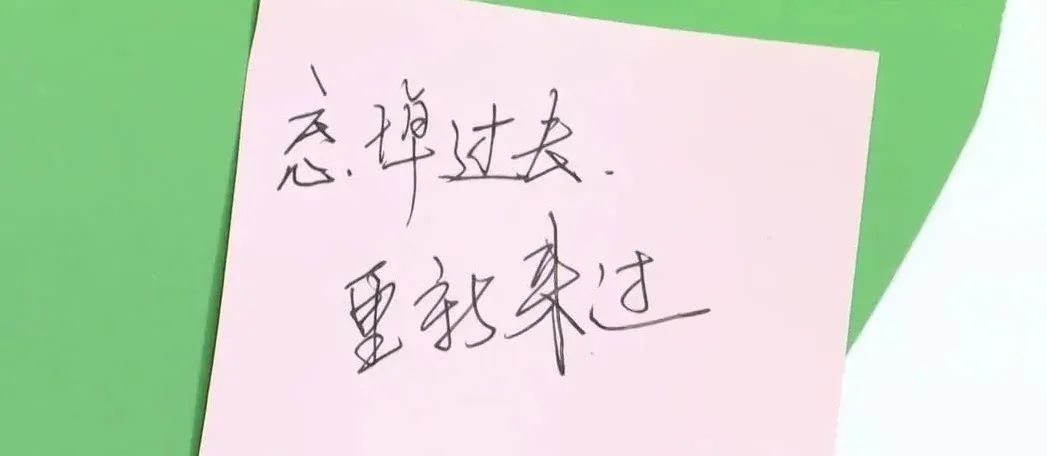 忘掉过去.
重新来过